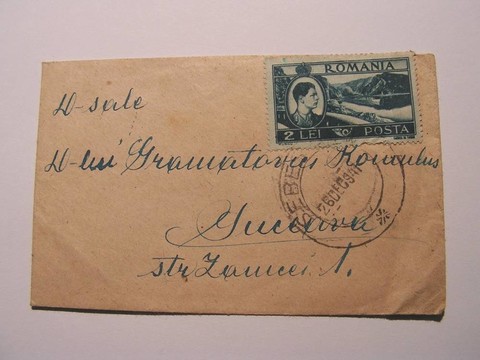 ROMANIA
2 LEI POSTA
D-sale
D-lui Gramatovici Romulus
Suceava
str. Zamcei 1.
26DEC947